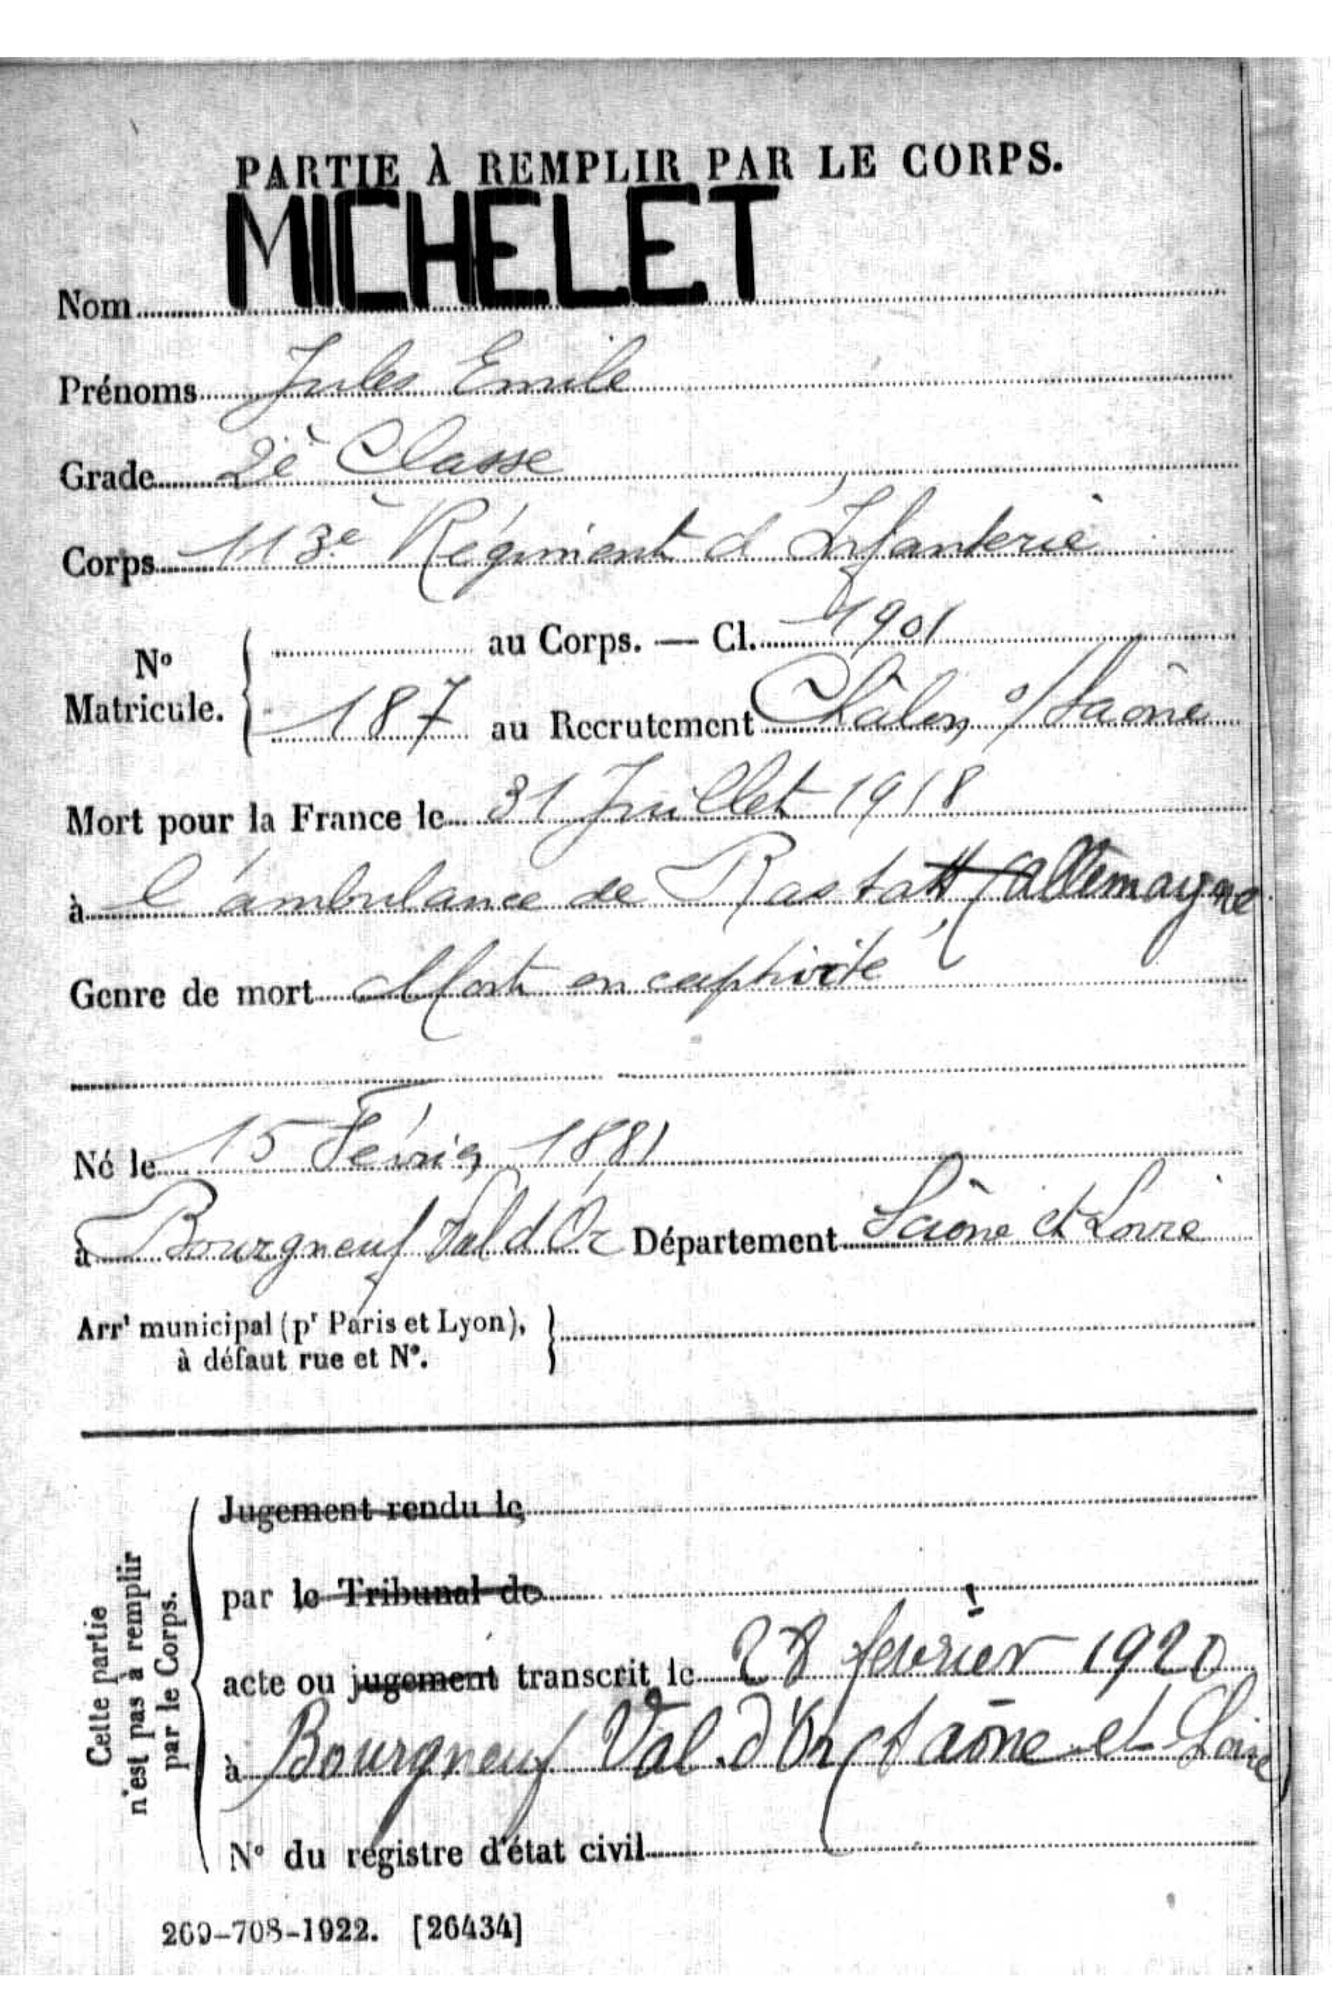 PARTIE À REMPLIR PAR LE CORPS.
Nom MICHELET
Prénoms Jules Emile
Grade 2è Classe
Corps 113e Régiment d'Infanterie
N° Matricule. { au Corps. — Cl. 1901
187 au Recrutement Châlon s/Saône
Mort pour la France le 31 Juillet 1918
à l'ambulance de Rastatt (allemagne
Genre de mort Mort en captivité
Né le 15 Février 1881
à Bourgneuf Val d'Or Département Saône et Loire
Arrt municipal (pr Paris et Lyon), }
à défaut rue et N°.
Cette partie
n'est pas à remplir
par le Corps.
Jugement rendu le
par le Tribunal de
acte ou jugement transcrit le 28 février 1920
à Bourgneuf Val d'Or (Saône et Loire)
N° du registre d'état civil
269-708-1922. [26434]